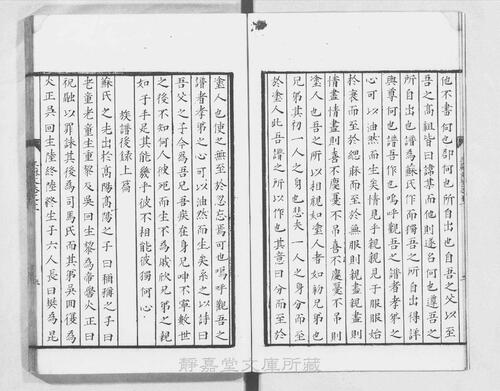 他不書何也卽何也所自出也自吾之父以至
吾之高祖皆曰諱某而他則遂名何也遵吾之
所自出也譜為蘇氏作而獨吾之所自出得詳
與尊何也譜吾作也嗚呼觀吾之譜者孝弟之
心可以油然而生矣情見乎親親見于服服始
於衰而至於緦麻而至於無服親盡親盡則
情盡情盡則喜不慶憂不弔喜不慶憂不弔則
塗人也吾之所以相視如塗人者如初兄弟也
兄弟其初一人之身也悲夫一人之身分而至
於塗人此吾譜之所以作也其意曰分而至於
塗人也使之無至於忽忘焉可也嗚呼觀吾之
譜者孝弟之心可以油然而生矣系之以詩曰
吾父之子今為吾兄吾疾在身兄呻不寧數世
之後不知何人彼死而生不為戚欣兄弟之親
如子手足其能幾乎彼不相能彼獨何心
族譜後錄上篇
蘇氏之先出於高陽高陽之子曰稱稱之子曰
老童老童生重黎及吳回重黎為帝嚳火正曰
祝融以罪誅其後為司馬氏而其弟吳回復為
火正吳回生陸終陸終生子六人長曰樊為昆
靜嘉堂文庫所藏